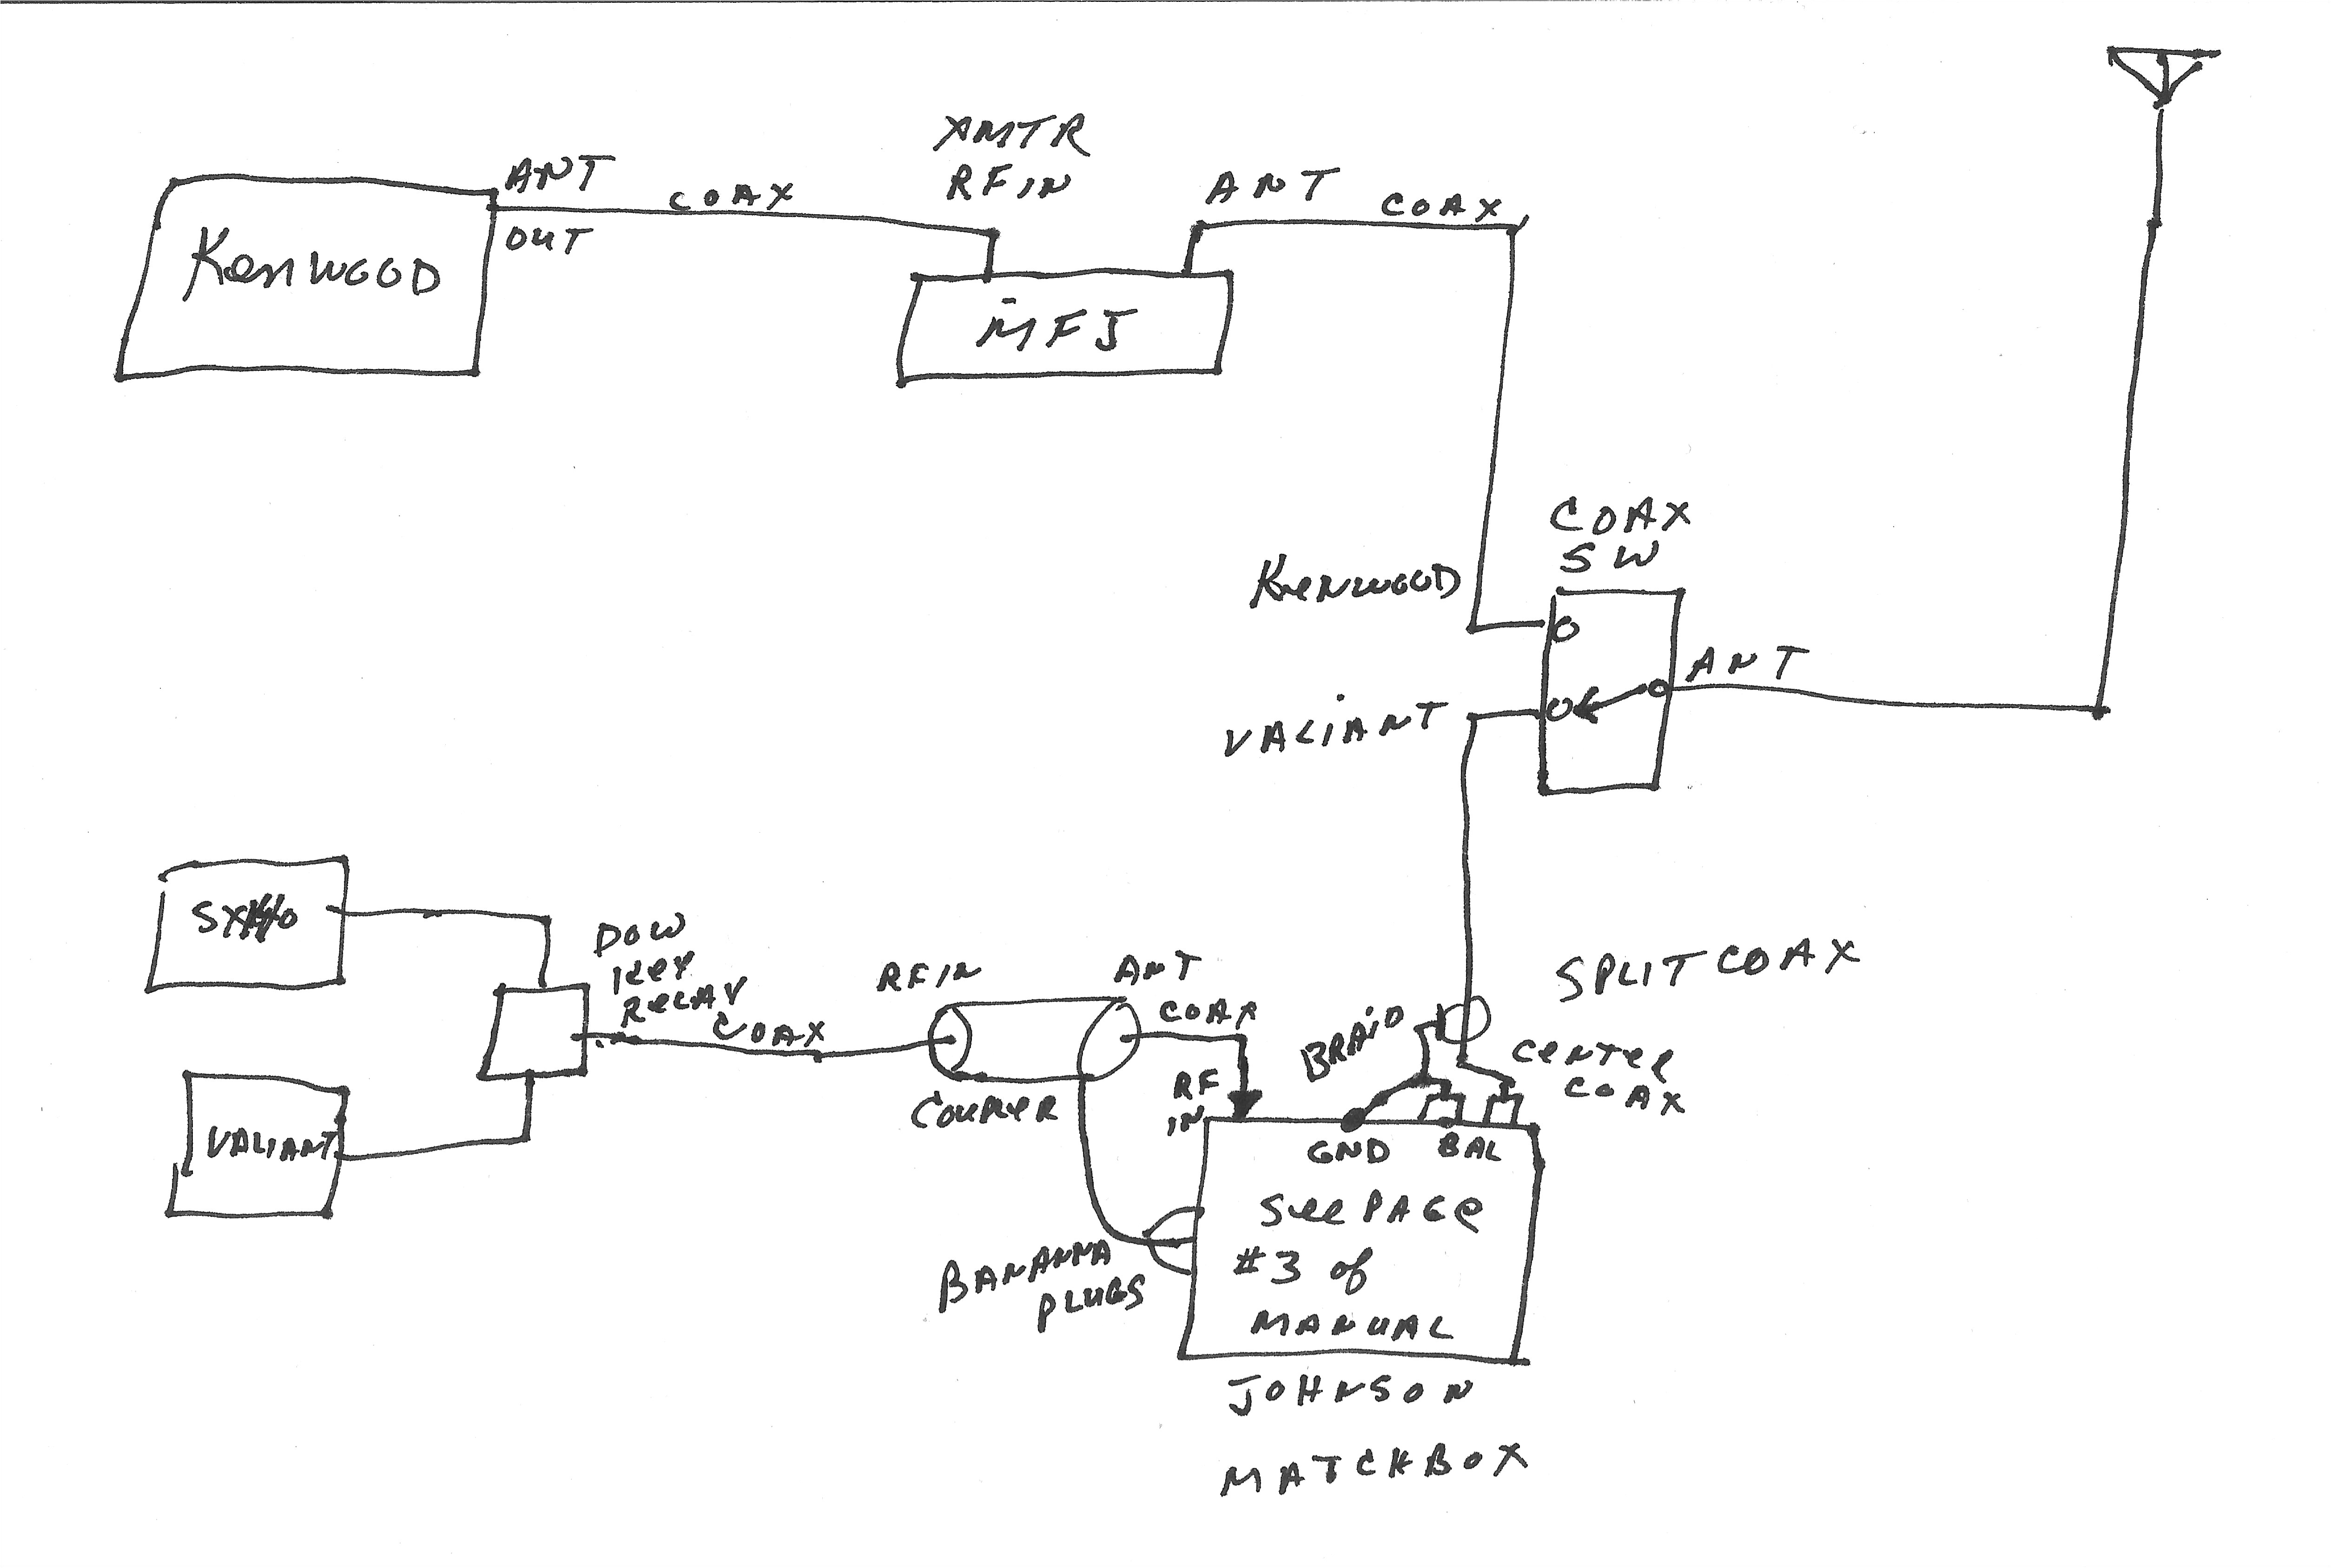 XMTR
RF IN
ANT
OUT
COAX
ANT
COAX
KenWOOD
MFJ
COAX
SW
KenWOOD
VALiANT
ANT
DOW
Key
ReLAY
COAX
RF IN
ANT
COAX
COUPLER
SPLIT COAX
BRAiD
CeNTeR
COAX
RF
IN
GND
BAL
VALIANT
See PAGe
#3 of
MANUAL
BANANNA
PLUGS
JOHNSON
MATCHBOX